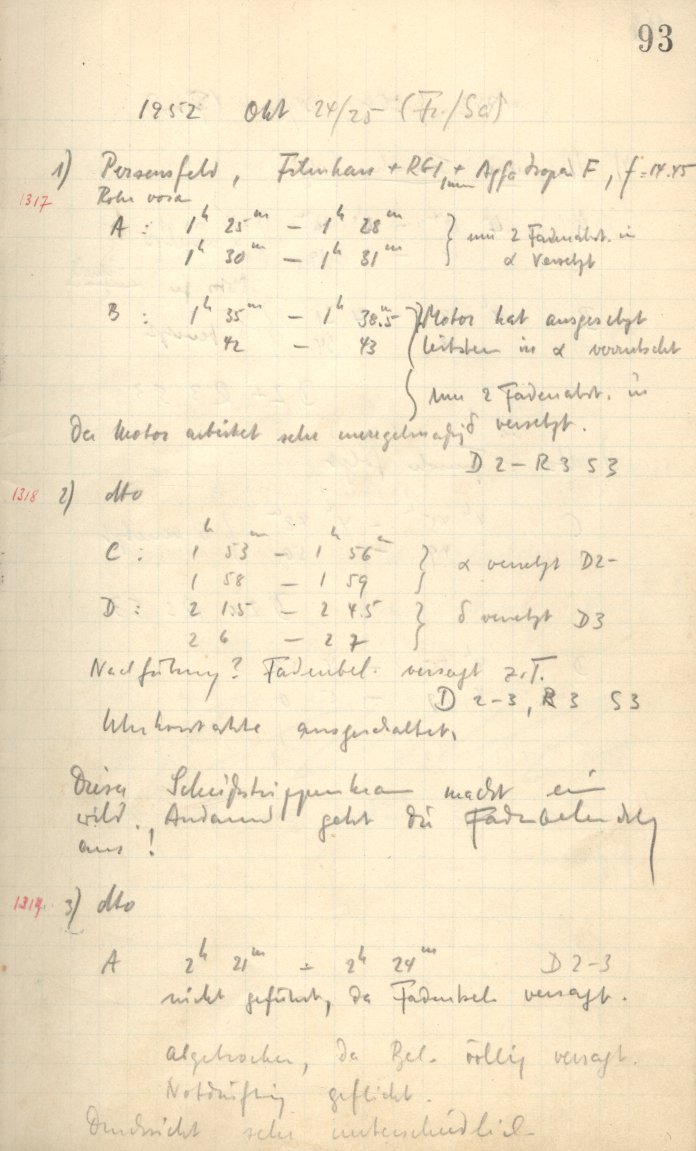 93
1952 Okt 24/25 (Fr./Sa)
1) Perseusfeld, Filmhaus + RG1 1mm + Agfa Isopan F, f = 14.45
1317
Rohr vorn
A : 1h 25m – 1h 28m } um 2 Fadenabst. in
1h 30m – 1h 31m α versetzt
B : 1h 35m – 1h 38.5 } Motor hat ausgesetzt
42 – 43 Leitstern in α verrutscht
} um 2 Fadenabst. in
Der Motor arbeitet sehr unregelmäßig δ versetzt.
D 2– R 3 S 3
1318 2) dto
C : 1h 53m – 1h 56m } α versetzt D2–
1 58 – 1 59
D : 2 1.5 – 2 4.5 } δ versetzt D3
2 6 – 2 7
Nachführung? Fadenbel. versagt z.T.
D 2–3, R 3 S3
Uhrkontakte ausgeschaltet.
Dieser Scheißstrippenkram macht ein
wild. Andauernd geht die Fadenbeleuchtg
aus!
1319 3) dto
A 2h 21m – 2h 24m D 2–3
nicht geführt, da Fadenbel. versagt.
abgebrochen, da Bel. völlig versagt.
Notdürftig geflickt.
Durchsicht sehr unterschiedlich